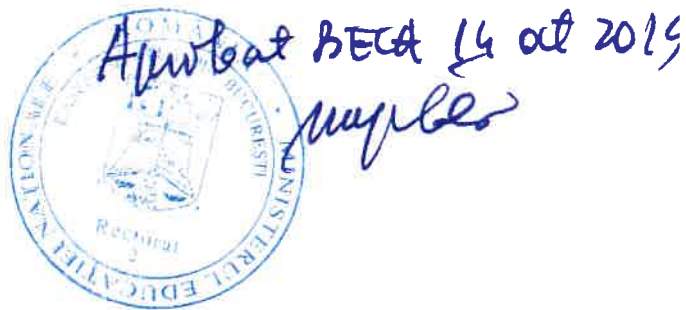 Aprobat BECA 14 oct 2019
ROMA
MINISTERUL EDUCAȚIEI NAȚIONALE
BUCUREȘTI
Rectorat
2